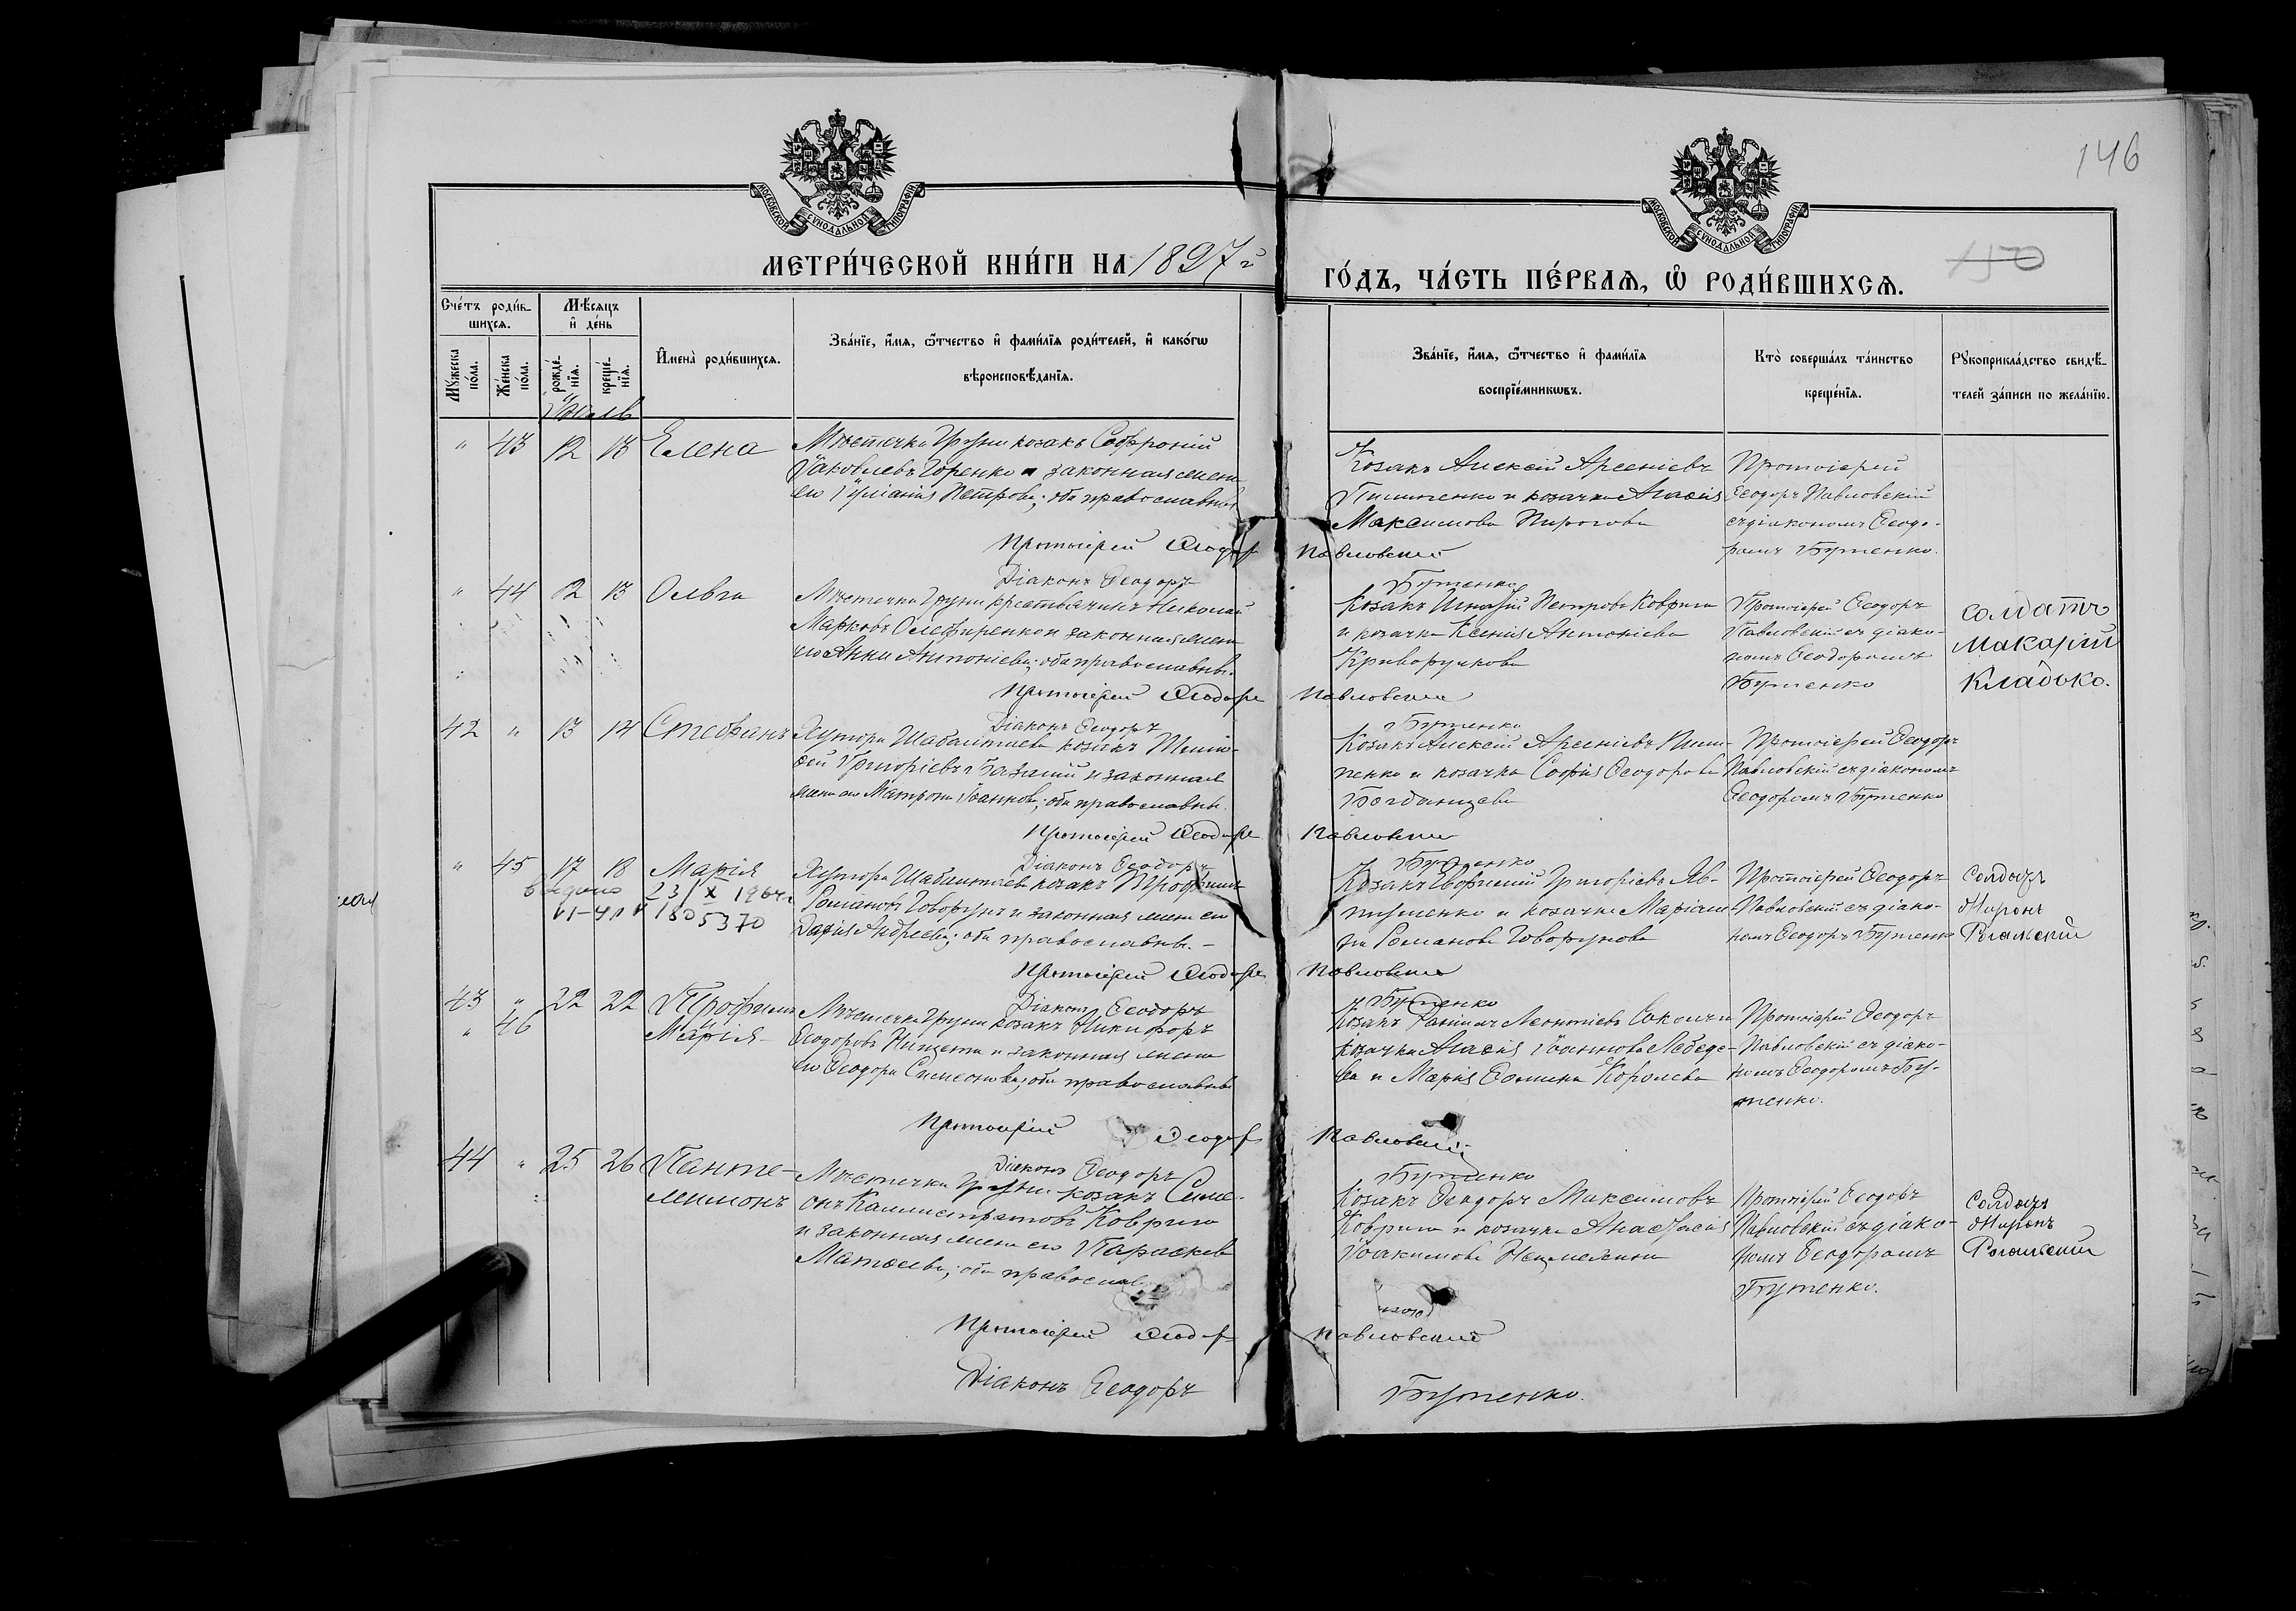 146
150
МОСКОВСКОЙ СУНОДАЛЬНОЙ ТИПОГРАФІИ
МОСКОВСКОЙ СУНОДАЛЬНОЙ ТИПОГРАФІИ
МЕТРИ́ЧЕСКОЙ КНИ́ГИ НА 1897й
ГО́ДЪ, ЧА́СТЬ ПЕ́РВАѦ, Ѽ РОДИ́ВШИХСѦ.
Сче́тъ роди́в-
шихсѧ.
Мѣ́сѧцъ
и҆ де́нь
Мꙋ́жеска
по́ла.
Же́нска
по́ла.
рожде́-
нїѧ.
креще́-
нїѧ.
И҆мена̀ роди́вшихсѧ.
Зва́нїе, и҆́мѧ, ѻ҆́тчество и҆ фами́лїѧ роди́телей, и҆ како́гѡ
вѣроисповѣ́данїѧ.
Зва́нїе, и҆́мѧ, ѻ҆́тчество и҆ фами́лїѧ
воспрїе́мникѡвъ.
Кто̀ соверша́лъ та́инство
креще́нїѧ.
Рꙋкоприкла́дство свидѣ́-
телей за́писи по жела́нїю.
Іюль
" 43 12 13 Елена
Мѣстечка Груни козакъ Софроній
Іаковлевъ Горенко и законная жена
его Іуліанія Петрова; оба православные
Козакъ Алексій Арсеніевъ
и козачка Агафія
Максимова Пирогова
Протоіерей
Ѳеодоръ Павловскій
съ діакономъ Ѳеодо-
ромъ Бутенко.
Протоіерей Ѳеодоръ Павловскій
Діаконъ Ѳеодоръ Бутенко
" 44 12 13 Ольга
Мѣстечка Груни крестьянинъ Николай
Марковъ Олефиренко и законная жена
его Анна Антоніева; оба православные.
Козакъ Игнатій Петровъ Коврига
и козачка Ксенія Антоніева
Криворучкова
Протоіерей Ѳеодоръ
Павловскій съ діако-
номъ Ѳеодоромъ
Бутенко
солдатъ
Макарій
Кладько.
Протоіерей Ѳеодоръ Павловскій
Діаконъ Ѳеодоръ Бутенко
42 " 13 14 Стефанъ
Хутора козакъ Тимо-
ѳей Григоріевъ и законная
жена его Матрона Іоаннова; оба православные.
Козакъ Алексій Арсеніевъ
и козачка Софія Ѳеодорова
Богданцева
Протоіерей Ѳеодоръ
Павловскій съ діакономъ
Ѳеодоромъ Бутенко
Протоіерей Ѳеодоръ Павловскій
Діаконъ Ѳеодоръ Бутенко
" 45 17 18 Марія
видано 23/X 1964г
1805370
Хутора козакъ Трофимъ
Романовъ Говорунъ и законная жена его
Дарія Андреева; оба православные. -
Козакъ Евфимій Григоріевъ Яв-
и козачка Маріам-
на Романова Говорунова
Протоіерей Ѳеодоръ
Павловскій съ діако-
номъ Ѳеодоръ Бутенко
Солдатъ
Миронъ
Протоіерей Ѳеодоръ Павловскій
Діаконъ Ѳеодоръ Бутенко
43 " 22 22 Трофимъ
" 46 Марія
Мѣстечка Груни козакъ Никифоръ
Ѳеодоровъ Нищета и законная жена
его Ѳеодора Симеонова; оба православные
Козакъ Даніилъ Леонтіевъ
козачка Агафія Іоаннова Лебеде-
ва и Марія Ѳомина Королева
Протоіерей Ѳеодоръ
Павловскій съ діако-
номъ Ѳеодоромъ Бу-
тенко.
Протоіерей Ѳеодоръ Павловскій
Діаконъ Ѳеодоръ Бутенко
44 " 25 26 Панте-
леимонъ
Мѣстечка Груни козакъ Симе-
онъ Каллистратовъ Коврига
и законная жена его Параскева
Матѳеева; оба православ
Козакъ Ѳеодоръ Максимовъ
Коврига и козачка Анастасія
Іоакимова
Протоіерей Ѳеодоръ
Павловскій съ діако-
номъ Ѳеодоромъ
Бутенко.
Солдатъ
Миронъ
Протоіерей Ѳеодоръ Павловскій
Діаконъ Ѳеодоръ Бутенко.